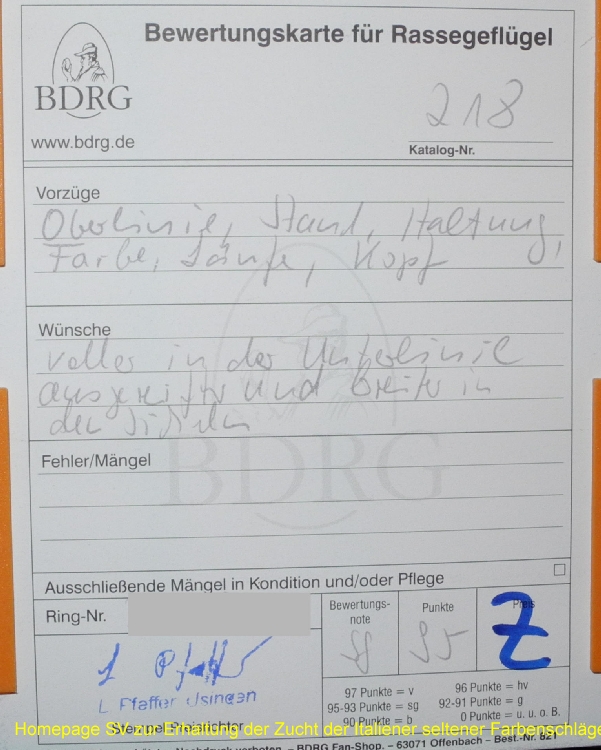 Bewertungskarte für Rassegeflügel
BDRG
www.bdrg.de
218
Katalog-Nr.
Vorzüge
Oberlinie, Stand, Haltung,
Farbe, Läufe, Kopf
Wünsche
voller in der Unterlinie
ausgereifter und breiter in
den Sicheln
BDRG
Fehler/Mängel
Ausschließende Mängel in Kondition und/oder Pflege
Ring-Nr.
Bewertungs-
note
Punkte
Preis
sg
95
Z
L. Pfaffer Usingen
97 Punkte = v 96 Punkte = hv
95-93 Punkte = sg 92-91 Punkte = g
90 Punkte = b 0 Punkte = u. u. o. B.
Homepage SV zur Erhaltung der Zucht der Italiener seltener Farbenschläge
– BDRG Fan-Shop. – 63071 Offenbach – Best.-Nr. 821